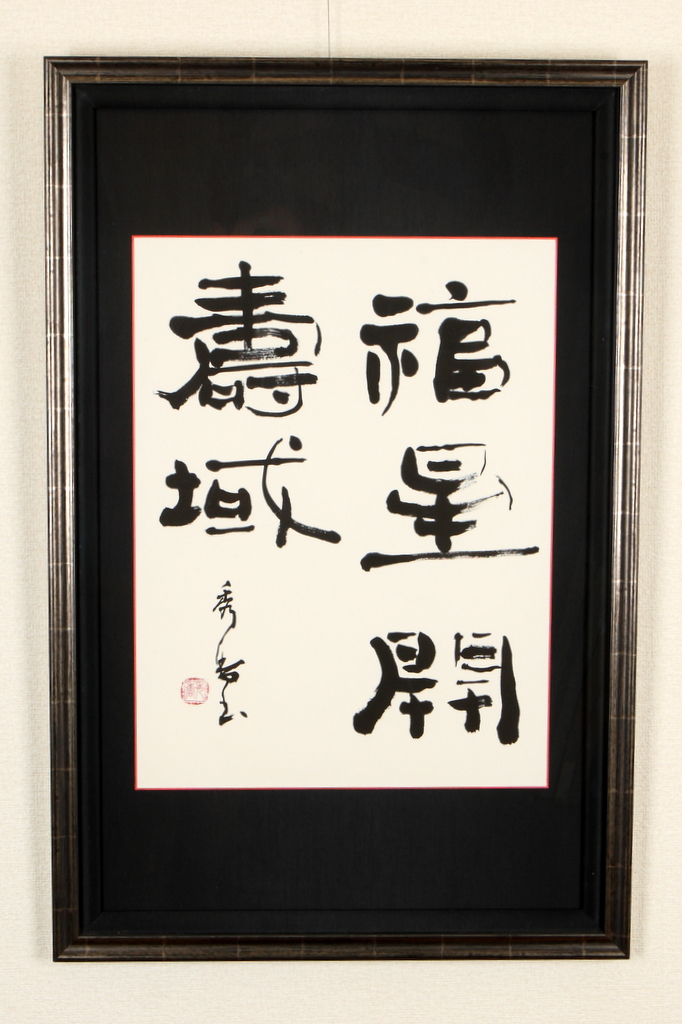 福星開
壽域
秀